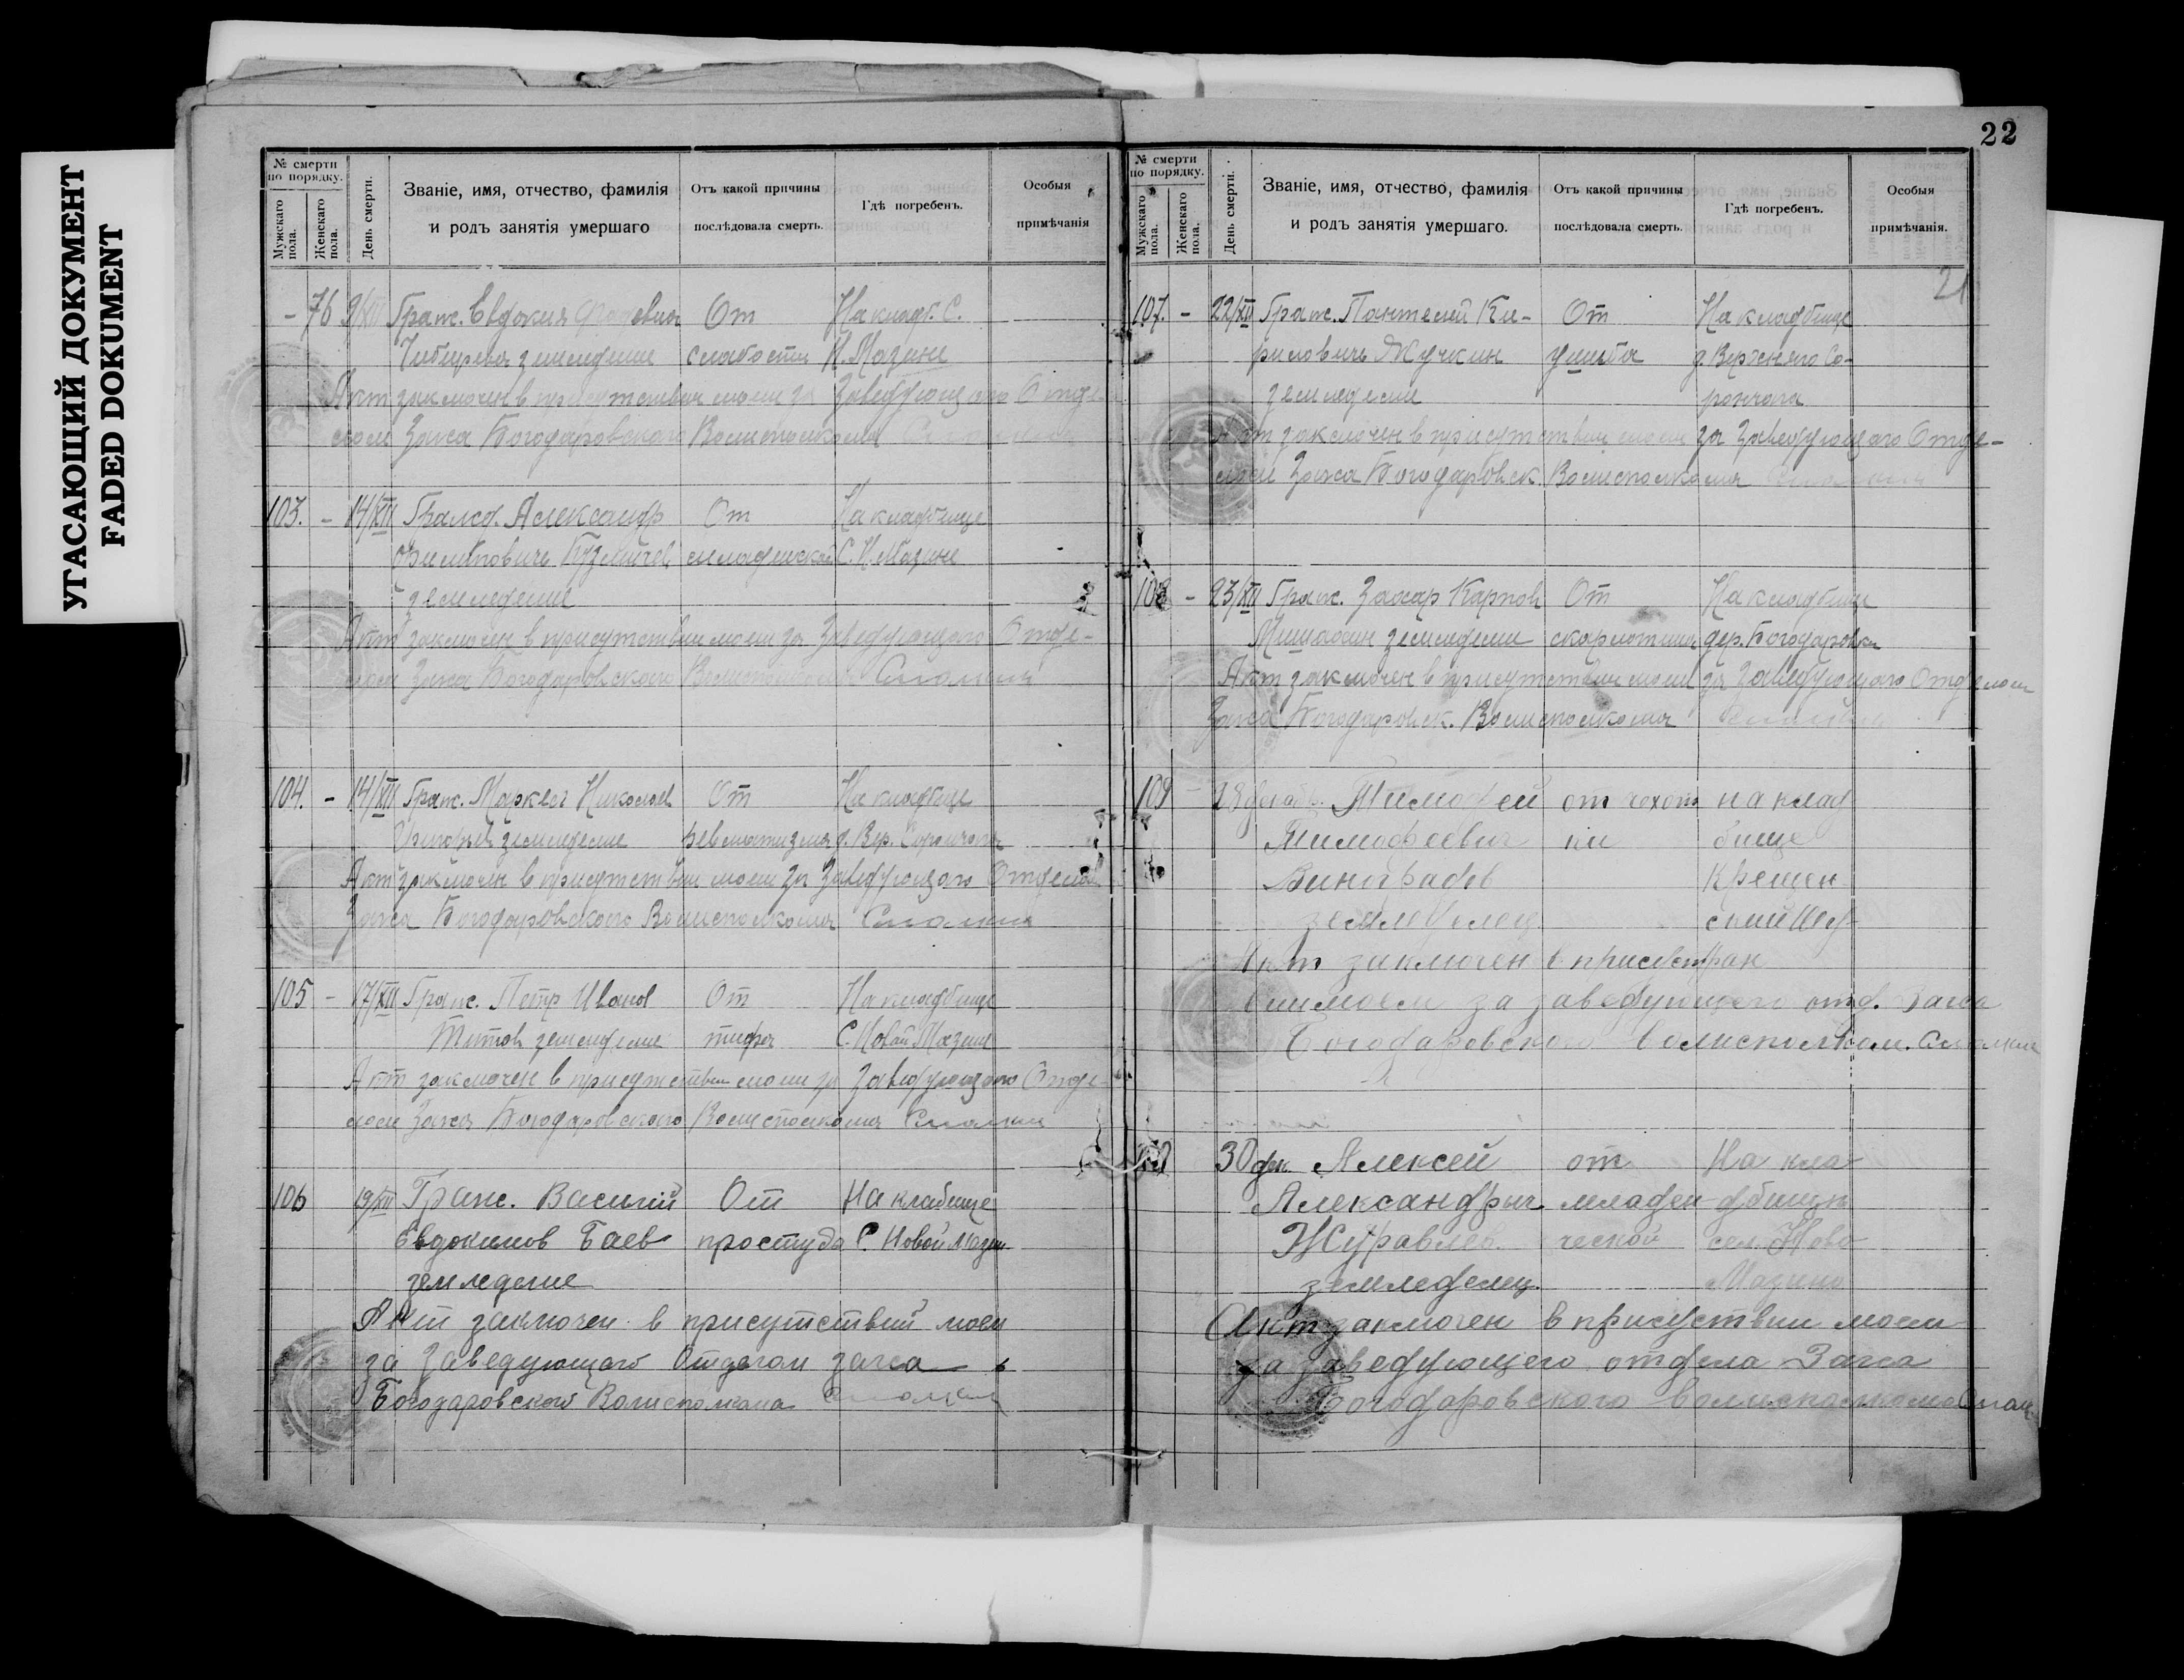 УГАСАЮЩИЙ ДОКУМЕНТ
FADED DOKUMENT
№ смерти по порядку.
Мужскаго пола.
Женскаго пола.
День смерти.
Званіе, имя, отчество, фамилія
и родъ занятія умершаго
Отъ какой причины
послѣдовала смерть.
Гдѣ погребенъ.
Особыя
примѣчанія
- 76 9/XII Граж. Евдокия От На кладб. С.
земледелие слабости Н. Мазине
Акт заключен в присутствии моем за Заведующего Отде-
лом Загса Богодаровского Волисполкома
103. - 14/XII Александр От На кладбище
Филиппович Кузмичев С. Н. Мазине
земледелие
Акт заключен в присутствии моем за Заведующего Отде-
лом Загса Богодаровского Волисполкома
104. - 14/XII Граж. Николаев От На кладбище
земледелие ревматизма д. Вер.
Акт заключен в присутствии моем за Заведующего Отделом
Загса Богодаровского Волисполкома
105 - 17/XII Граж. Петр Иванов От На кладбище
Титов земледелие тифа С. Новой Мазине
Акт заключен в присутствии моем за Заведующего Отде-
лом Загса Богодаровского Волисполкома
106 19/XII Граж. Василий От На кладбище
Евдокимов Баев простуда С. Новой Мазин
земледелие
Акт заключен в присутствий моем
за Заведующего Отделом загса
Богодаровского Волисполкома
22
№ смерти по порядку.
Мужскаго пола.
Женскаго пола.
День смерти.
Званіе, имя, отчество, фамилія
и родъ занятія умершаго.
Отъ какой причины
послѣдовала смерть.
Гдѣ погребенъ.
Особыя
примѣчанія.
21
107. - 22/XII Граж. Пантелей Ки- От На кладбище
риловичь Жучкин ушиба д. Верхняго Со-
земледелие рочага
Акт заключен в присутствии моем за Заведующего Отде-
лом Загса Богодаровск. Волисполкома
108 - 23/XII Граж. Захар Карпов От На кладбище
земледелие скарлотина дер. Богодаровки
Акт заключен в присутствии моем за Заведующего Отделом
Загса Богодаровск. Волисполкома
109 - 28 декаб. Тимофей от чехот на клад
Тимофеевич ки бище
Виноградов Крещен
земледелец
Акт заключен в присутст
вии моем за заведующего отд. Загса
Богодаровского волисполком.
30 дек. Алексей от На кла
Александрыч младен дбищи
Журавлев ческой сел. Ново
земледелец. Мазино
Акт заключен в присуствии моем
за заведующего отдела Загса
Богодаровского волисполкома